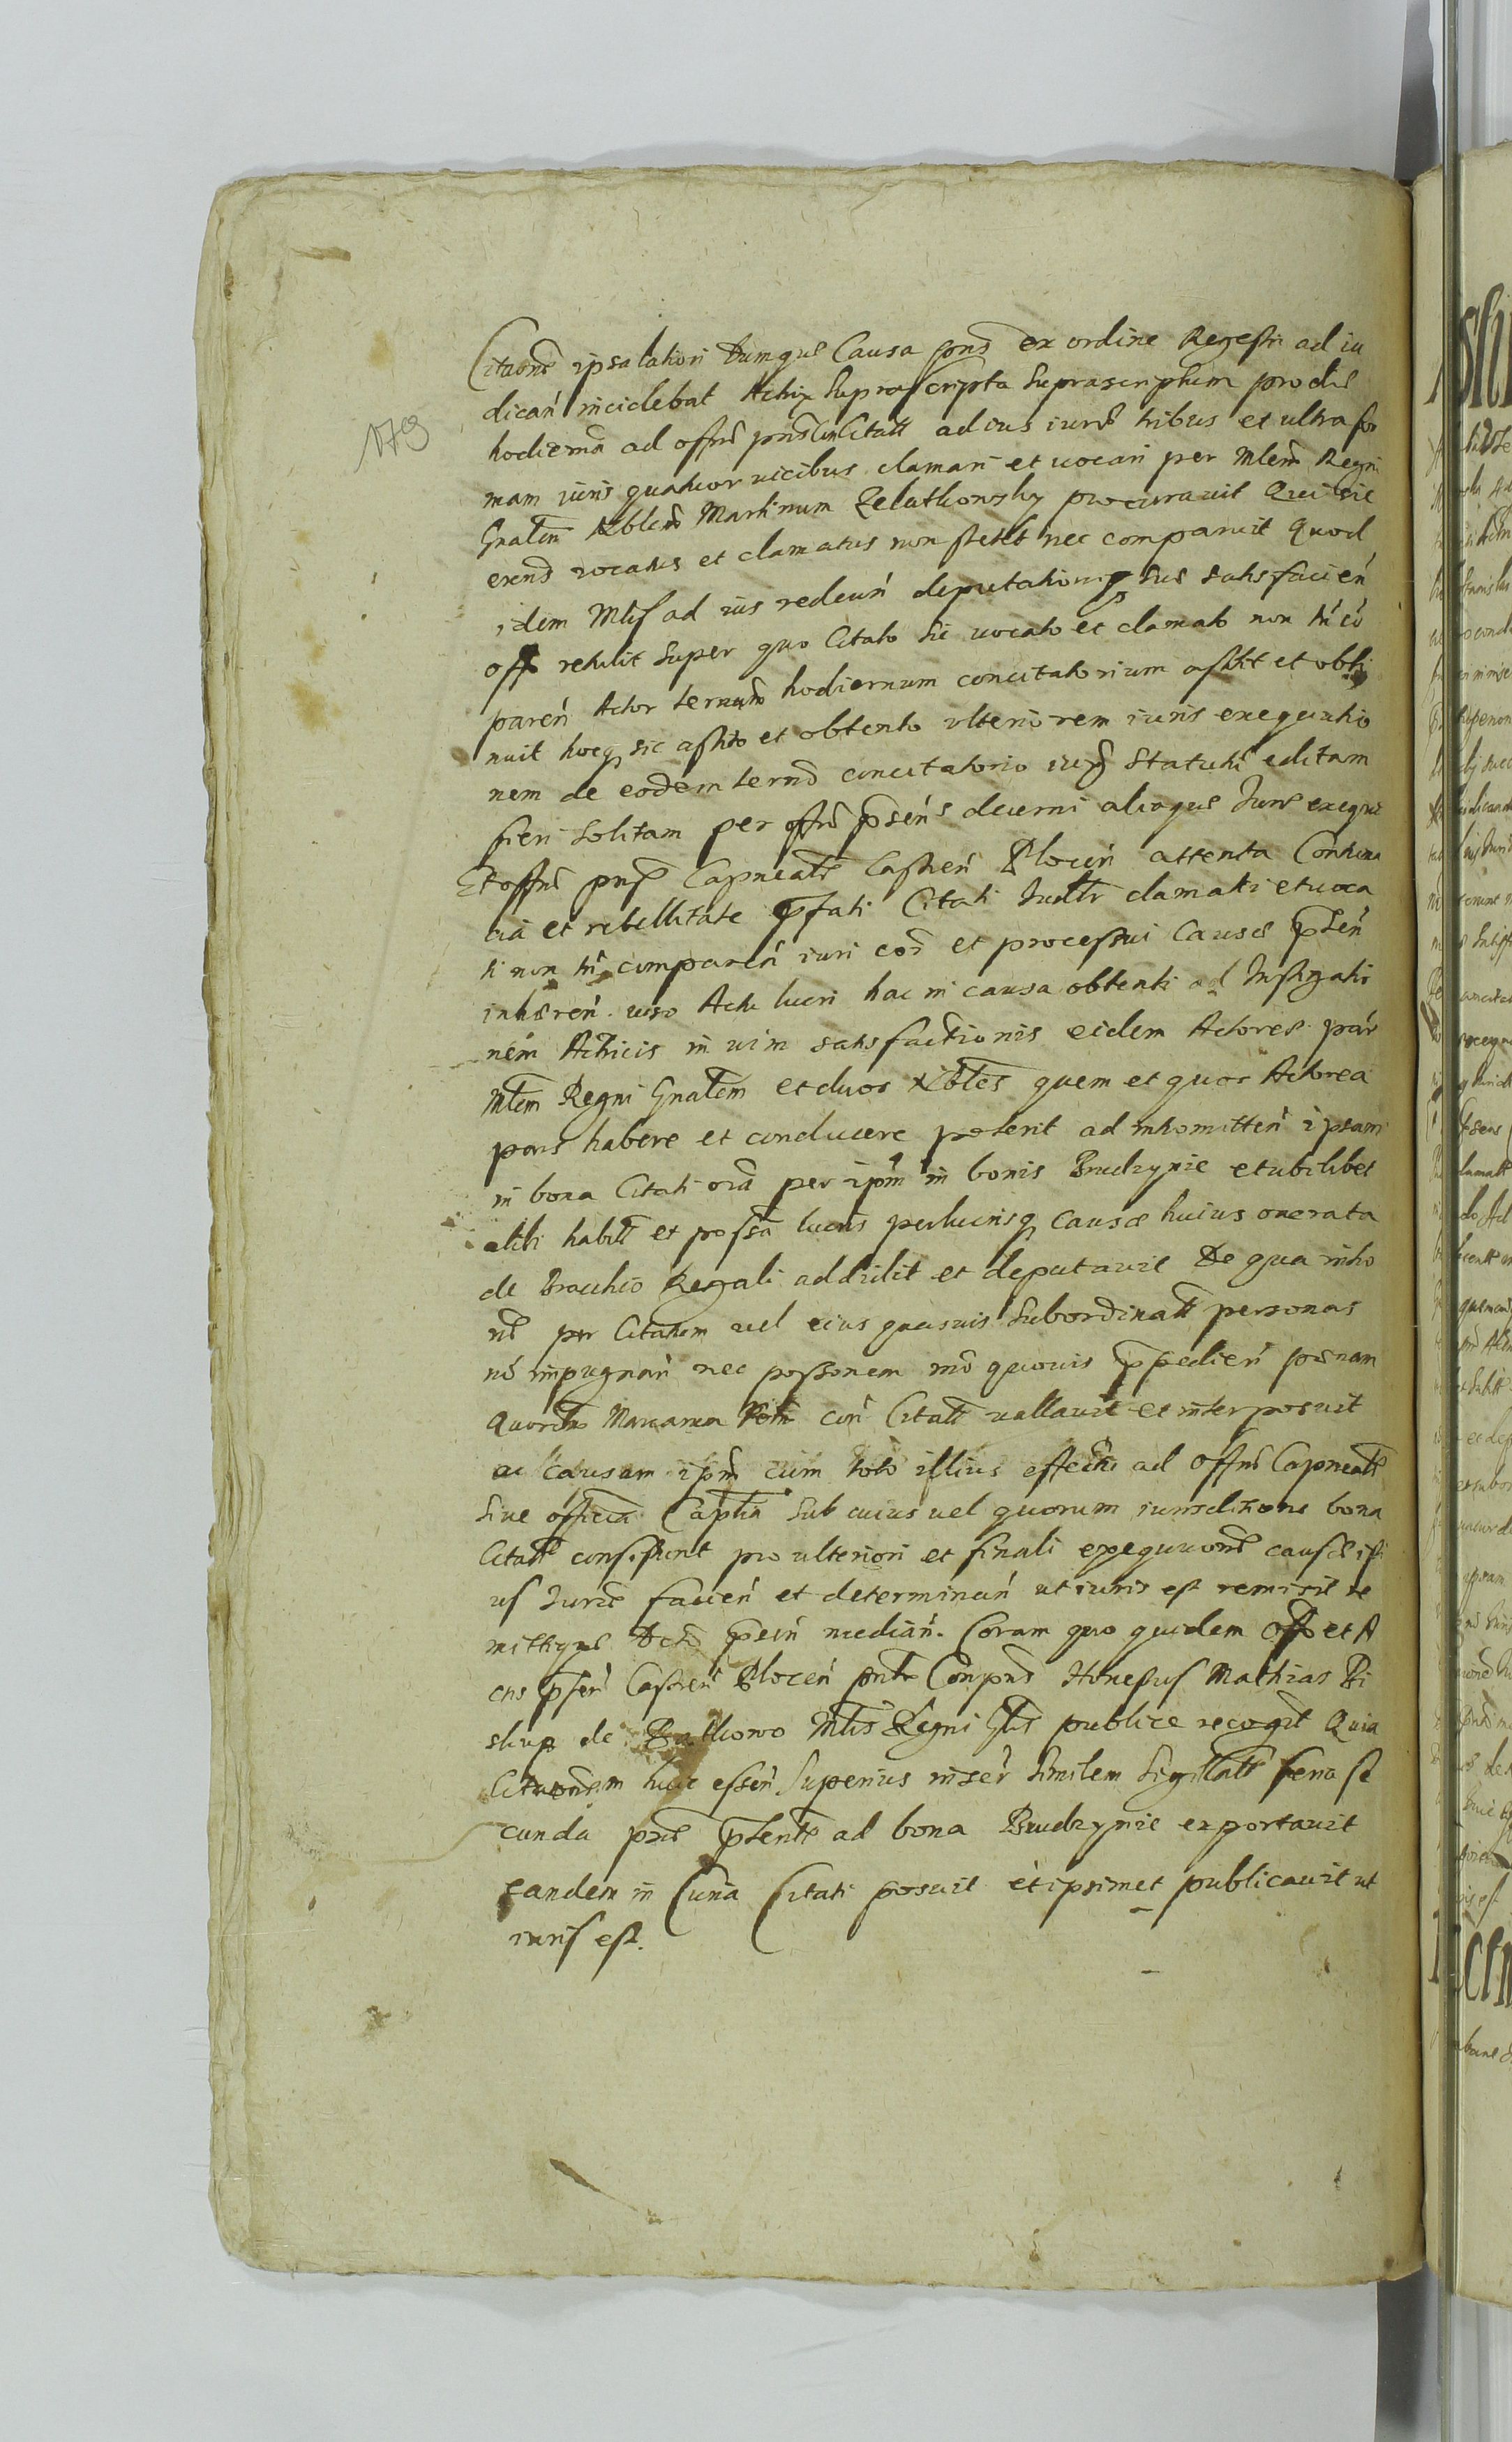 Citaonẽ ipsa latiori Dumque Causa pns ex ordine Regestri ad iu
dicań incidebat Actrix suprascripta suprascriptum pro die
179
hodierna ad offm pns Citatt ad ius iure tribus et ultra for
mam iuris quatuor vicibus clamari et vocari per Mlem Regni
Gnalem Nblem Martinum Zelatkowsky procuravit Qui sic
exns vocatus et clamatus non stetit nec comparuit Quod
idem Mlis ad ius redeuń deputationiq sue satisfacień
offo retulit super quo Citato sic vocato et clamato non tń co
pareń Actor ternum hodiernum concitatorium astitit et obti
nuit hocq sic astito et obtento ulteriorem iuris exequutio
nem de eodem terno concitatorio iuxta Statuti editam
fieri solitam per offm psens decerni aliaque Iure exequi
Et offm pns Capneale Castren Plocen attenta Contuma
cia et rebellitate pfati Citati Iudltr clamati et voca
ti non tń compareń iuri coi et processui Cause psen
inhereń viso Actu lucri hac in causa obtenti ad Instigatio
nem Actricis in vim satisfactionis eidem Actoree par
Mlem Regni Gnalem et duos Nbles quem et quos Actorea
pars habere et conducere poterit ad intromitteń ipsam
in bona Citati oia per ipm in bonis Brudzynie et ubilibet
alibi habitt et possa lucris perlucrisq cause huius onerata
de Bracchio Regali addidit et deputavit De qua intro
ne per Citatum vel eius quasvis subordinatt personas
no impugnań nec possonem mo quovis ppedień poenam
Quordm Marcarum Polm con Citatt vallavit et interposuit
ac causam ipm cum toto illius effectu ad Offm Capneale
sive officia Captla sub cuius vel quorum iurisditione bona
Citatt consistunt pro ulteriori et finali exequuone cause isti
us Iure facień et determinań ut iuris est remisit re
mittque Acto psen mediań. Coram quo quidem Offo et A
ctis psen Castren Plocen pnte Conpns Honestus Mathias Bi
skup de Mlis Regni Glis publice recogt Quia
Citaonem huic essen superius inser similem sigillatt feria se
cunda pns psente ad bona Brudzynie exportavit
eandem in Curia Citati posuit et ipsimet publicavit ut
iuris est.